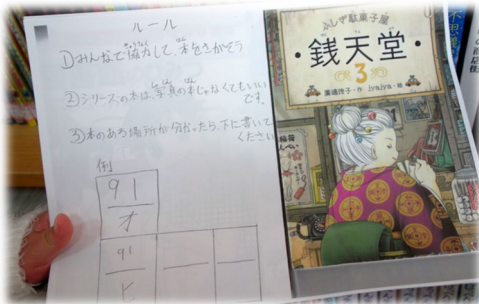 ルール
①みんなで協力して、本をさがそう
②シリーズの本は、写真の本じゃなくてもいい
です。
③本のある場所が分かったら、下に書いて
ください
例
91
オ
91
ヒ
ふしぎ駄菓子屋
銭天堂
3
廣嶋玲子・作 jyajya・絵